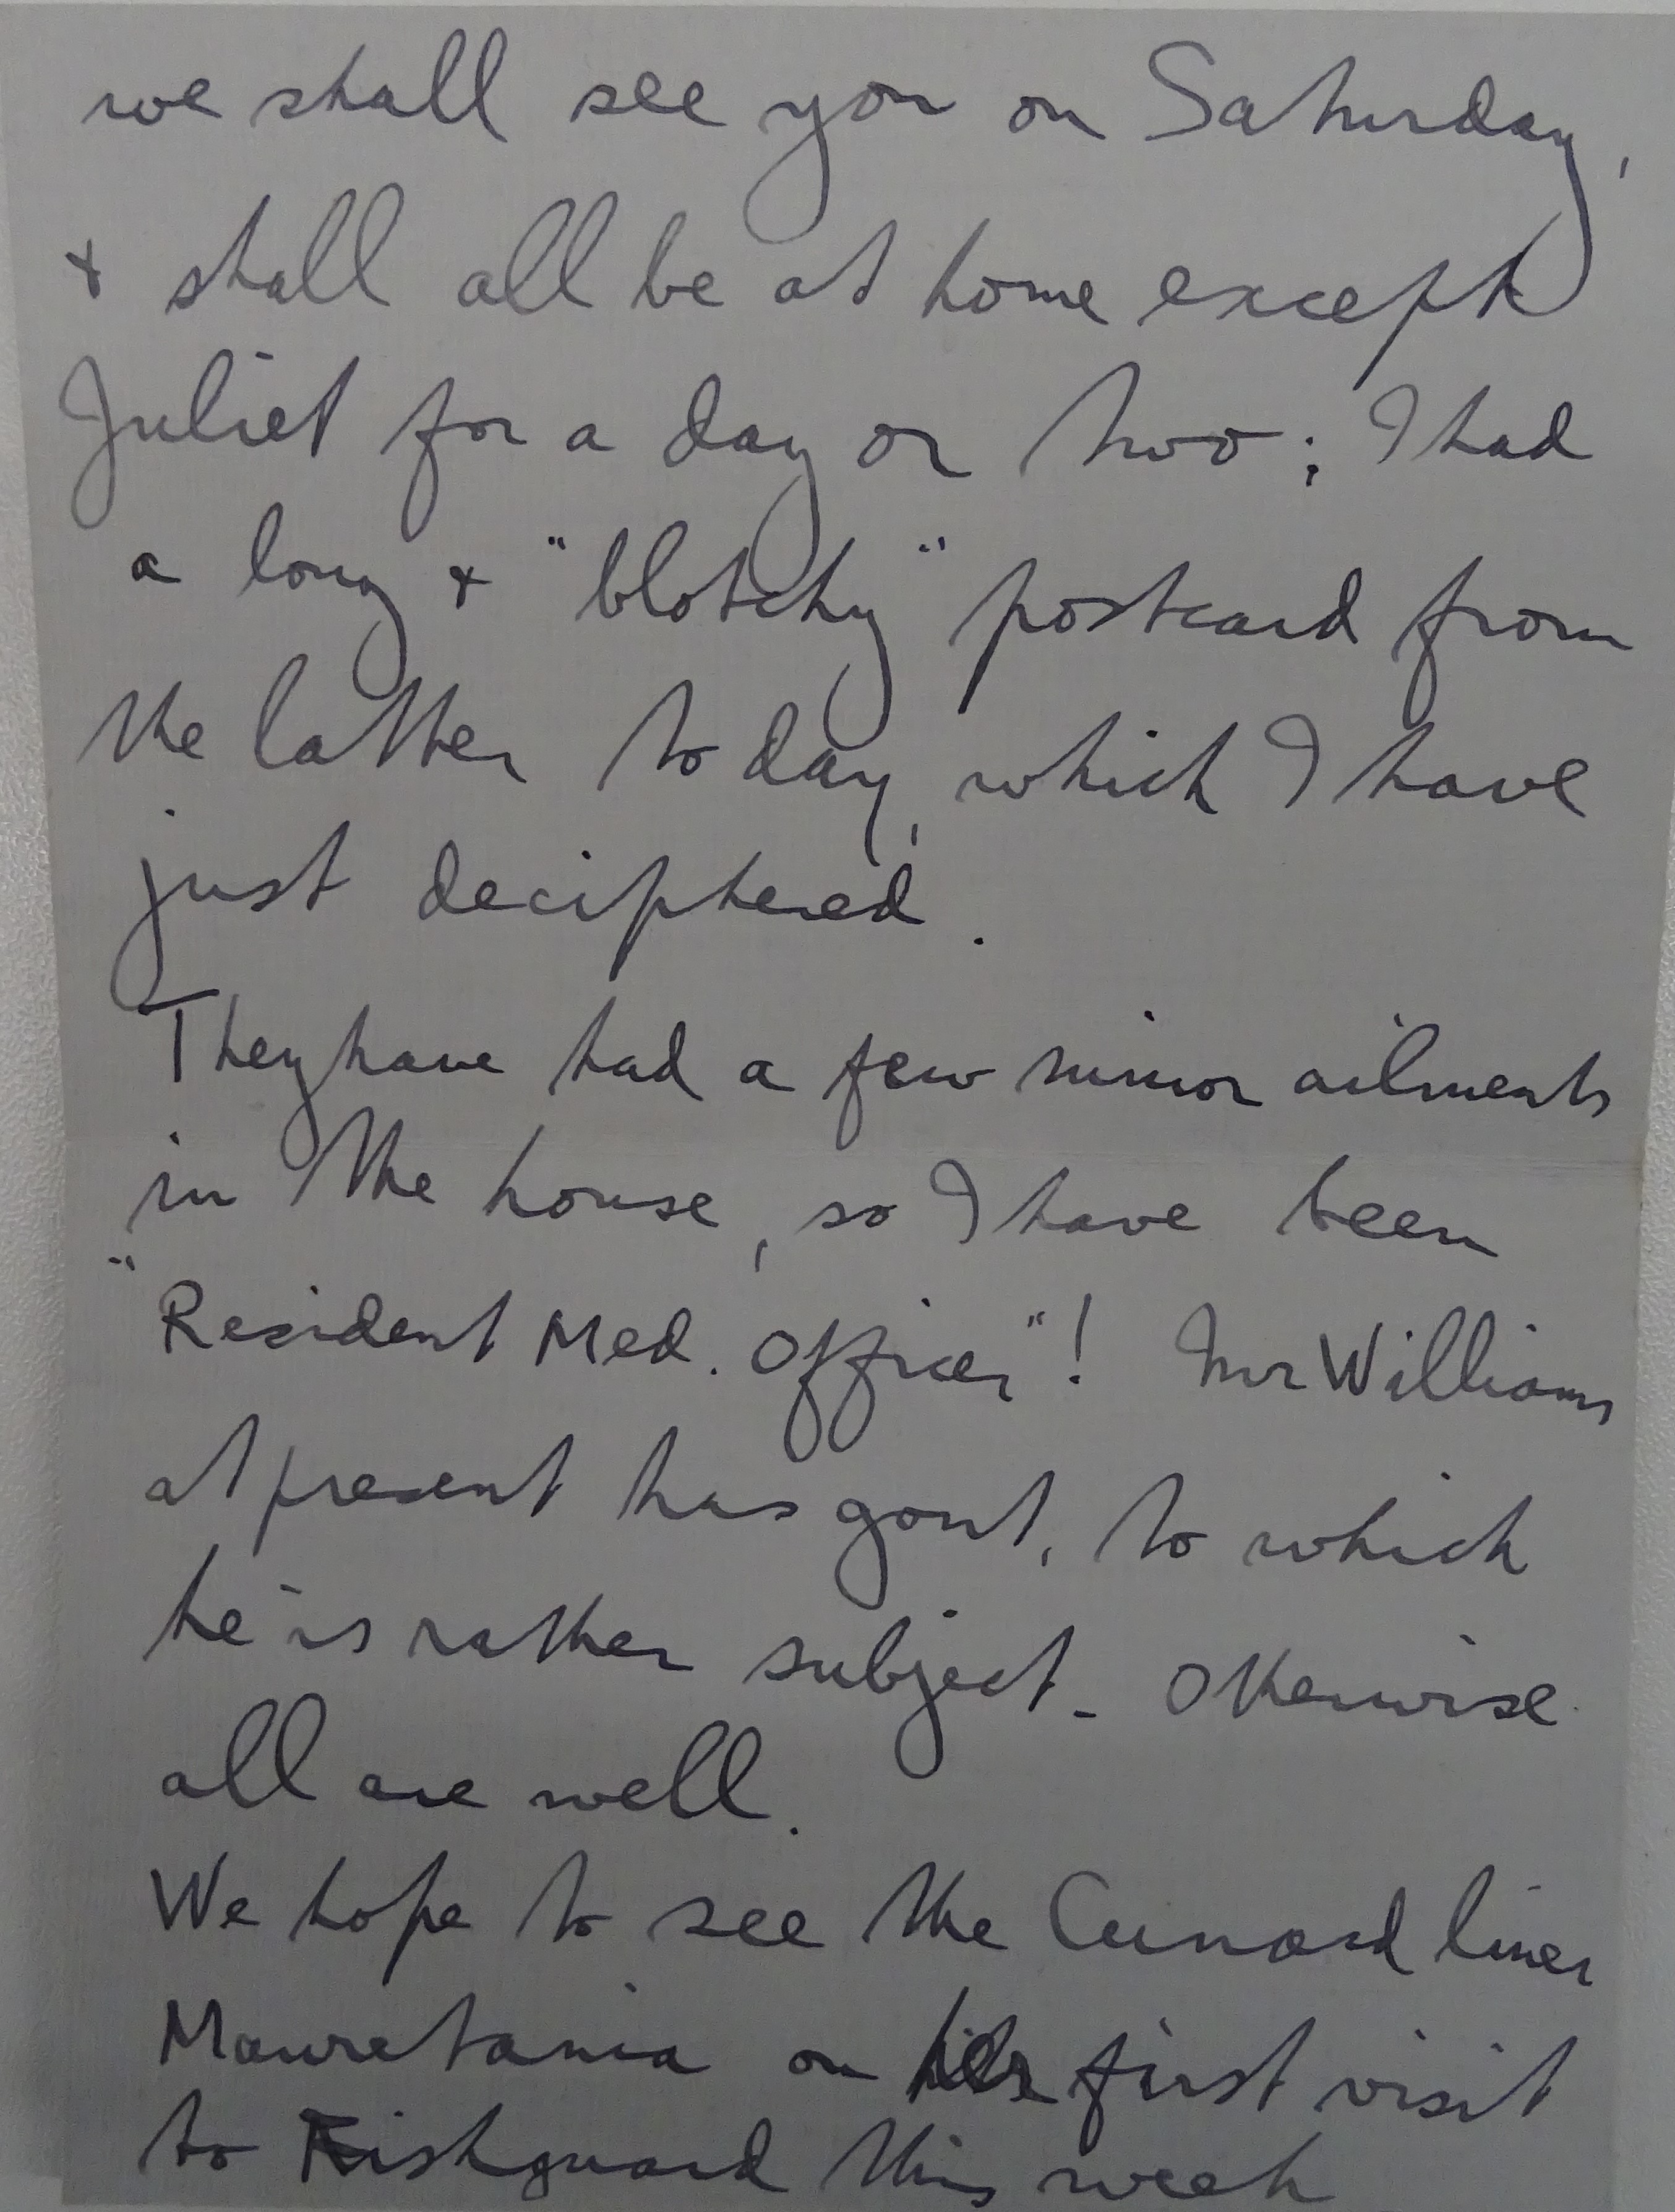 we shall see you on Saturday,
& shall all be at home except
Juliet for a day or two; I had
a long & "blotchy" postcard from
the latter to day, which I have
just deciphered.
They have had a few minor ailments
in the house, so I have been
"Resident Med. Officer"! Mr Williams
at present has gout, to which
he is rather subject - Otherwise
all are well.
We hope to see the Cunard liner
Mauretania on her first visit
to Fishguard this week